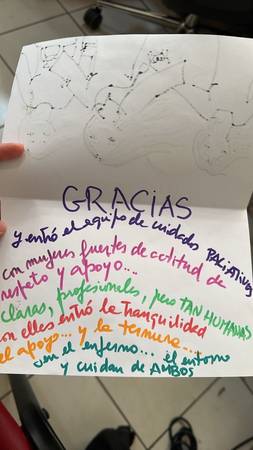 GRACIAS
y entró el equipo de cuidados PALIATIVOS
con mujeres fuertes de actitud de
respeto y apoyo...
claras, profesionales, pero TAN HUMANAS
con elles entró la tranquilidad
el apoyo... y la ternura...
en el enfermo... el entorno
y cuidan de AMBOS